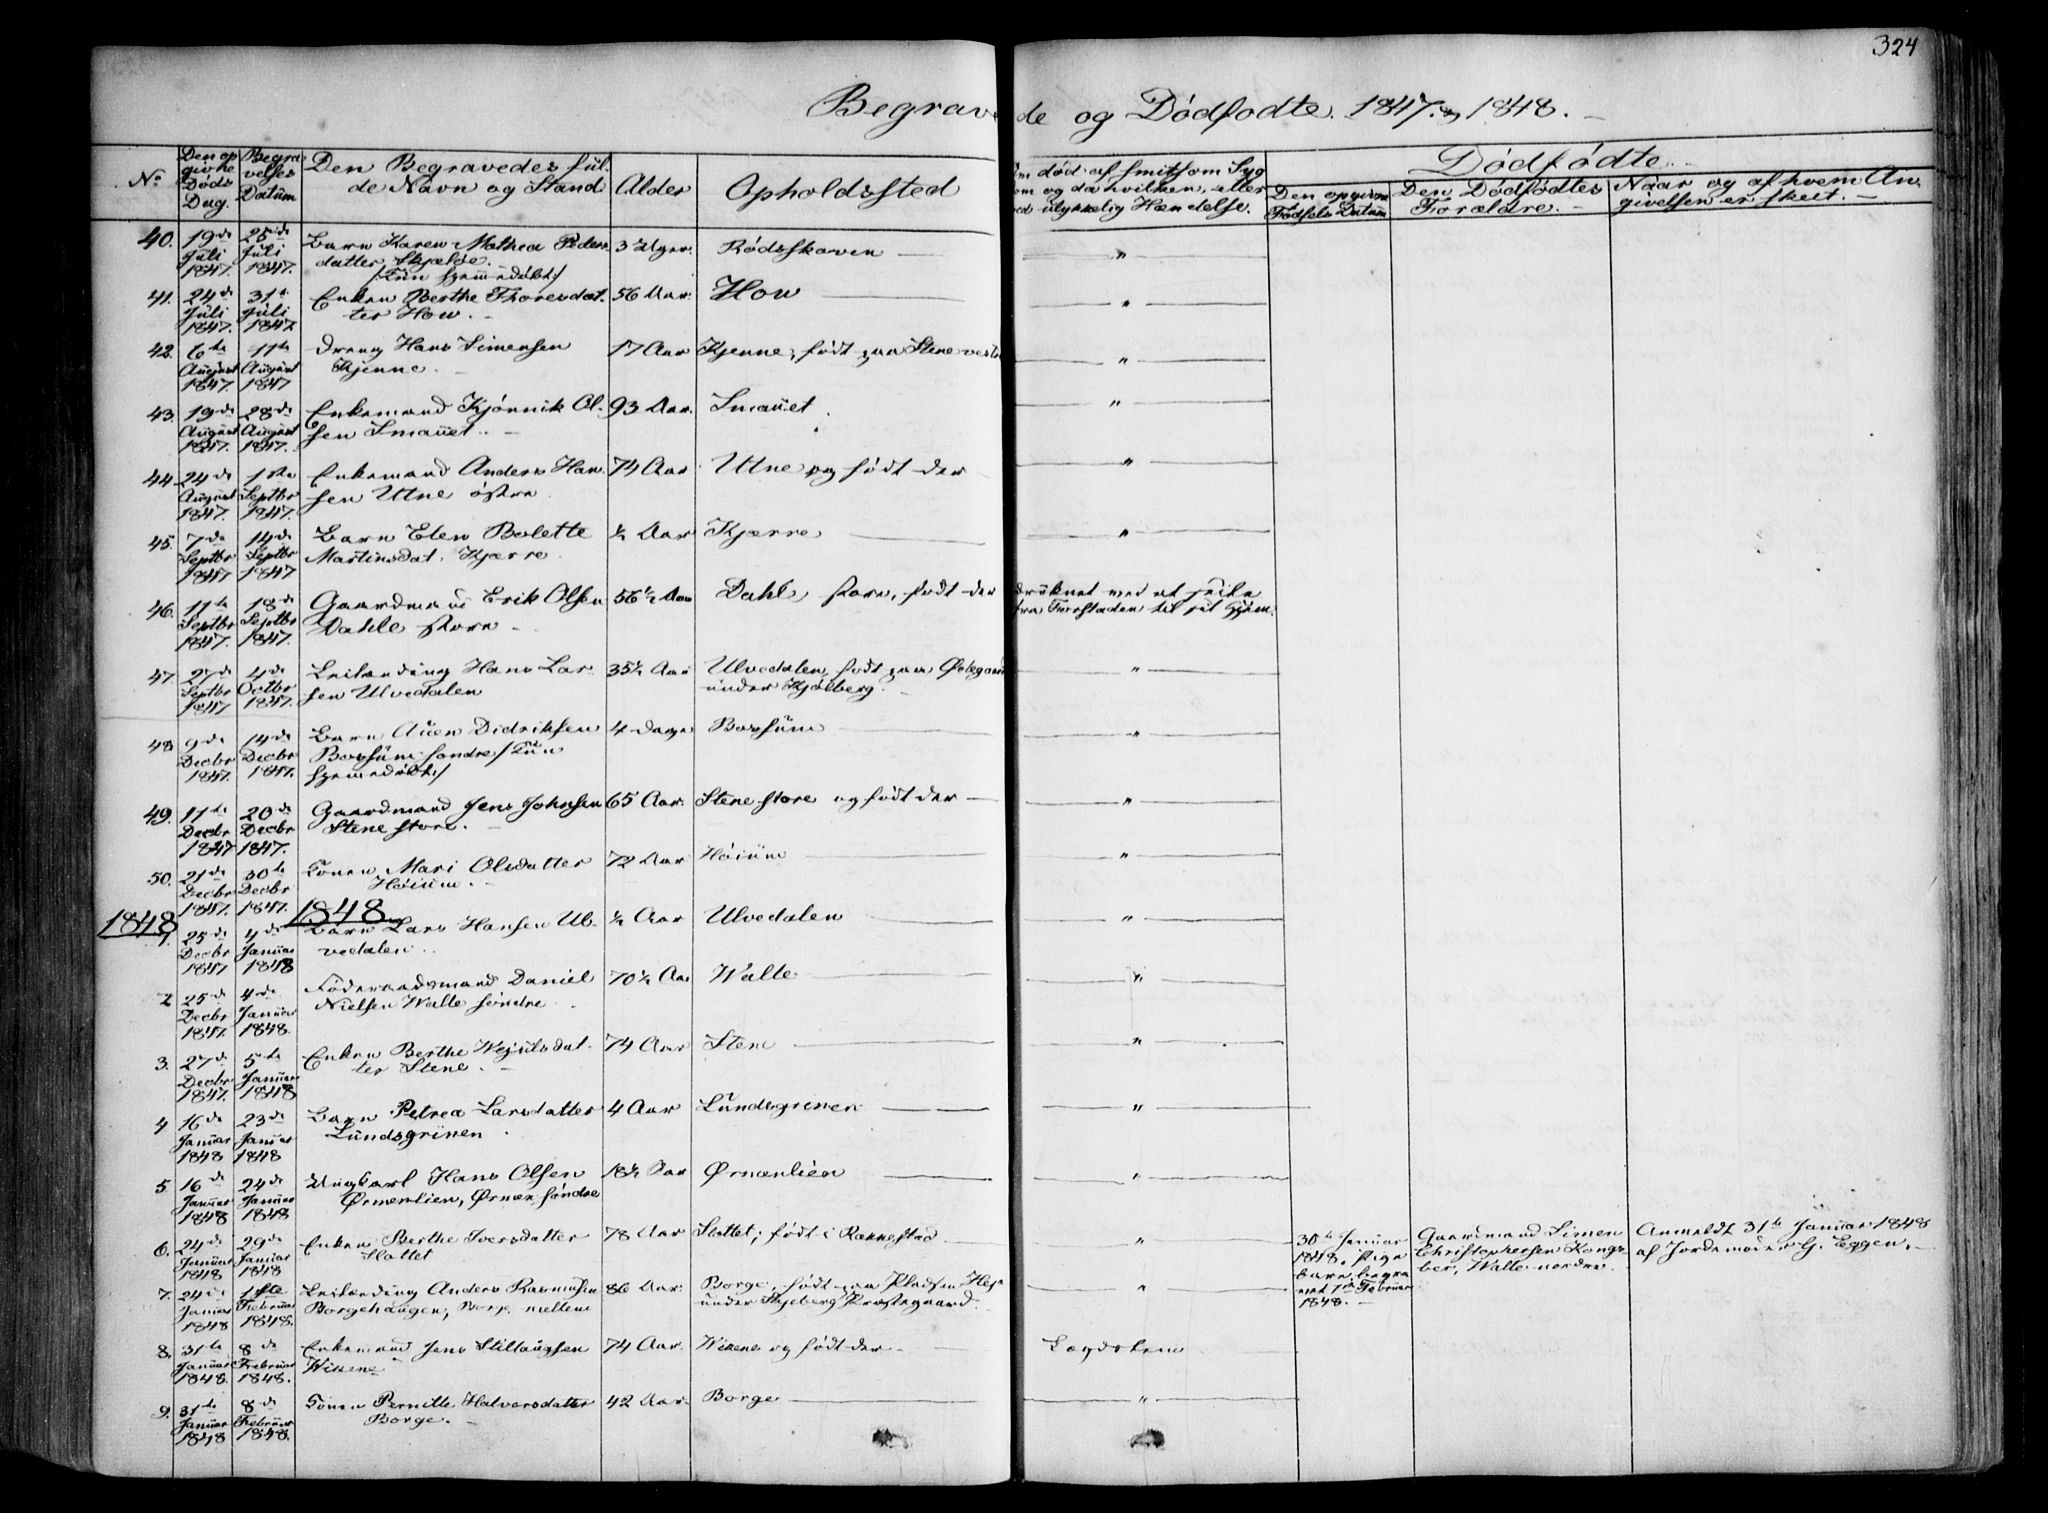 324
Begravede og Dödfödte. 1847. & 1848.
No
Den opgivne Döds Dag.
Begravelses Datum
Den Begravedes fulde Navn og Stand
Alder
Opholdssted
Om död af smitsom Syg
om og da hvilken, eller
ved ulykkelig Hændelse.
Dödfödte.
Den opgivne Födsels Datum
Den Dödfödtes Forældre.
Naar og af hvem Angivelsen er skeet.
40. 19de Juli 1847. 25de Juli 1847. Barn Karen Mathea Peders 3 Uger. Rödsskoven "
datter Skjelöe.
/Kun hjemmedöbt/
41. 24de Juli 1847. 31te Juli 1847 Enken Berthe Thoresdat- 56 Aar. How "
ter How.
42. 6te August 1847. 11te August 1847 Dreng Hans Simensen 17 Aar Kjenne, födt paa Stene vestre "
Kjenne.
43. 19de August 1847. 28de August 1847. Enkemand Kjönnik Ol- 93 Aar. Smauet. "
sen Smauet.
44. 24de August 1847. 1ste Septbr 1847. Enkemand Anders Han- 74 Aar Utne og födt der "
sen Utne östre
45. 7de Septbr 1847 14de Septbr 1847 Barn Elen Bolette ½ Aar Kjærre "
Martinsdat. Kjærre
46. 11te Septbr 1847. 18de Septbr 1847. Gaardmand Erik Olsen 56½ Aar Dahle store, födt der druknet ved at seile
Dahle store fra Forstaden til sit Hjem.
47 27de Septbr 1847 4de Octbr 1847. Leilænding Hans Lar- 35½ Aar Ulvedalen, födt paa Östegaard "
sen Ulvedalen under Kjölberg.
48 9de Decbr 1847. 14de Decbr 1847. Barn Auen Didriksen 4 Dage Bossum "
Bossum söndre /Kun
hjemmedöbt/
49. 11te Decbr 1847 20de Decbr 1847. Gaardmand Jens Johnsen 65 Aar. Stene store og födt der "
Stene store.
50. 21de Decbr 1847. 30te Decbr 1847. Konen Mari Olsdatter 72 Aar Höium "
Höium.
1848 1848
1. 25de Decbr 1847 4de Januar 1848 Barn Lars Hansen Ul- ½ Aar Ulvedalen "
vedalen.
2 25de Decbr 1847. 4de Januar 1848. Föderaadsmand Daniel 70½ Aar Walle "
Nielsen Walle söndre
3. 27de Decbr 1847. 5te Januar 1848 Enken Berthe 74 Aar Stene "
ter Stene.
4 16de Januar 1848 23de Januar 1848 Barn Petrea Larsdatter 4 Aar Lundsgrinen "
Lundsgrinen
5 16de Januar 1848 24de Januar 1848 Ungkarl Hans Olsen 18½ Aar Örmenlien "
Örmenlien, Örmen söndre
6. 24de Januar 1848 29de Januar 1848 Enken Berthe Iversdatter 78 Aar Slottet; födt i Rakkestad "
Slottet
30te Januar 1848. Pige barn, begravet 1ste Februar 1848.
Gaardmand Simen Christophersen Kongsber, Walle nordre.
Anmeldt 31te Januar 1848 af Jordemoder G. Eggen.
7. 24de Januar 1848 1ste Februar 1848. Leilænding Anders Rasmusen 86 Aar. Borge, födt paa Pladsen "
Borgehaugen, Borge mellem under Skjeberg Præstegaard.
8. 31te Januar 1848. 8de Februar 1848. Enkemand Jens Stillaugsen 74 Aar. Wikene og födt der Lægdslem
Wikene
9. 31te Januar 1848 8de Februar 1848. Konen Pernille Halvorsdatter 42 Aar. Borge "
Borge.